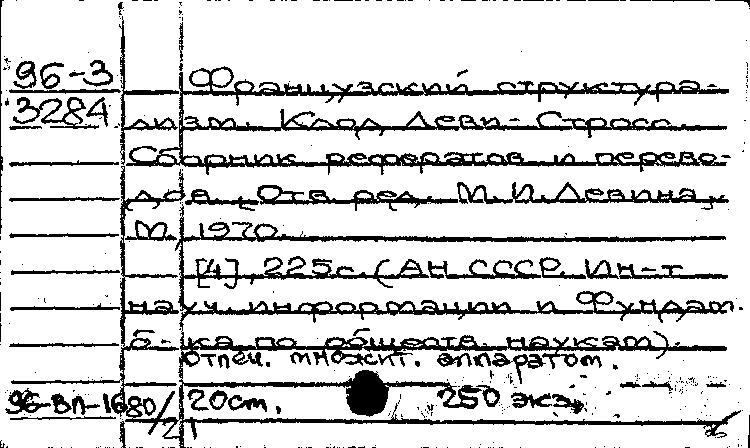 96-3 Французский структура-
3284 лизм. Клод Леви-Стросс.
Сборник рефератов и перево-
дов. [Отв. ред. М. И. Левина].
М, 1970.
[4], 225с. (АН СССР. Ин-т
науч. информации и Фундам.
б-ка по обществ. наукам).
Отпеч. множит. аппаратом.
96-ВЛ-1680/21 20cm. 250 экз.